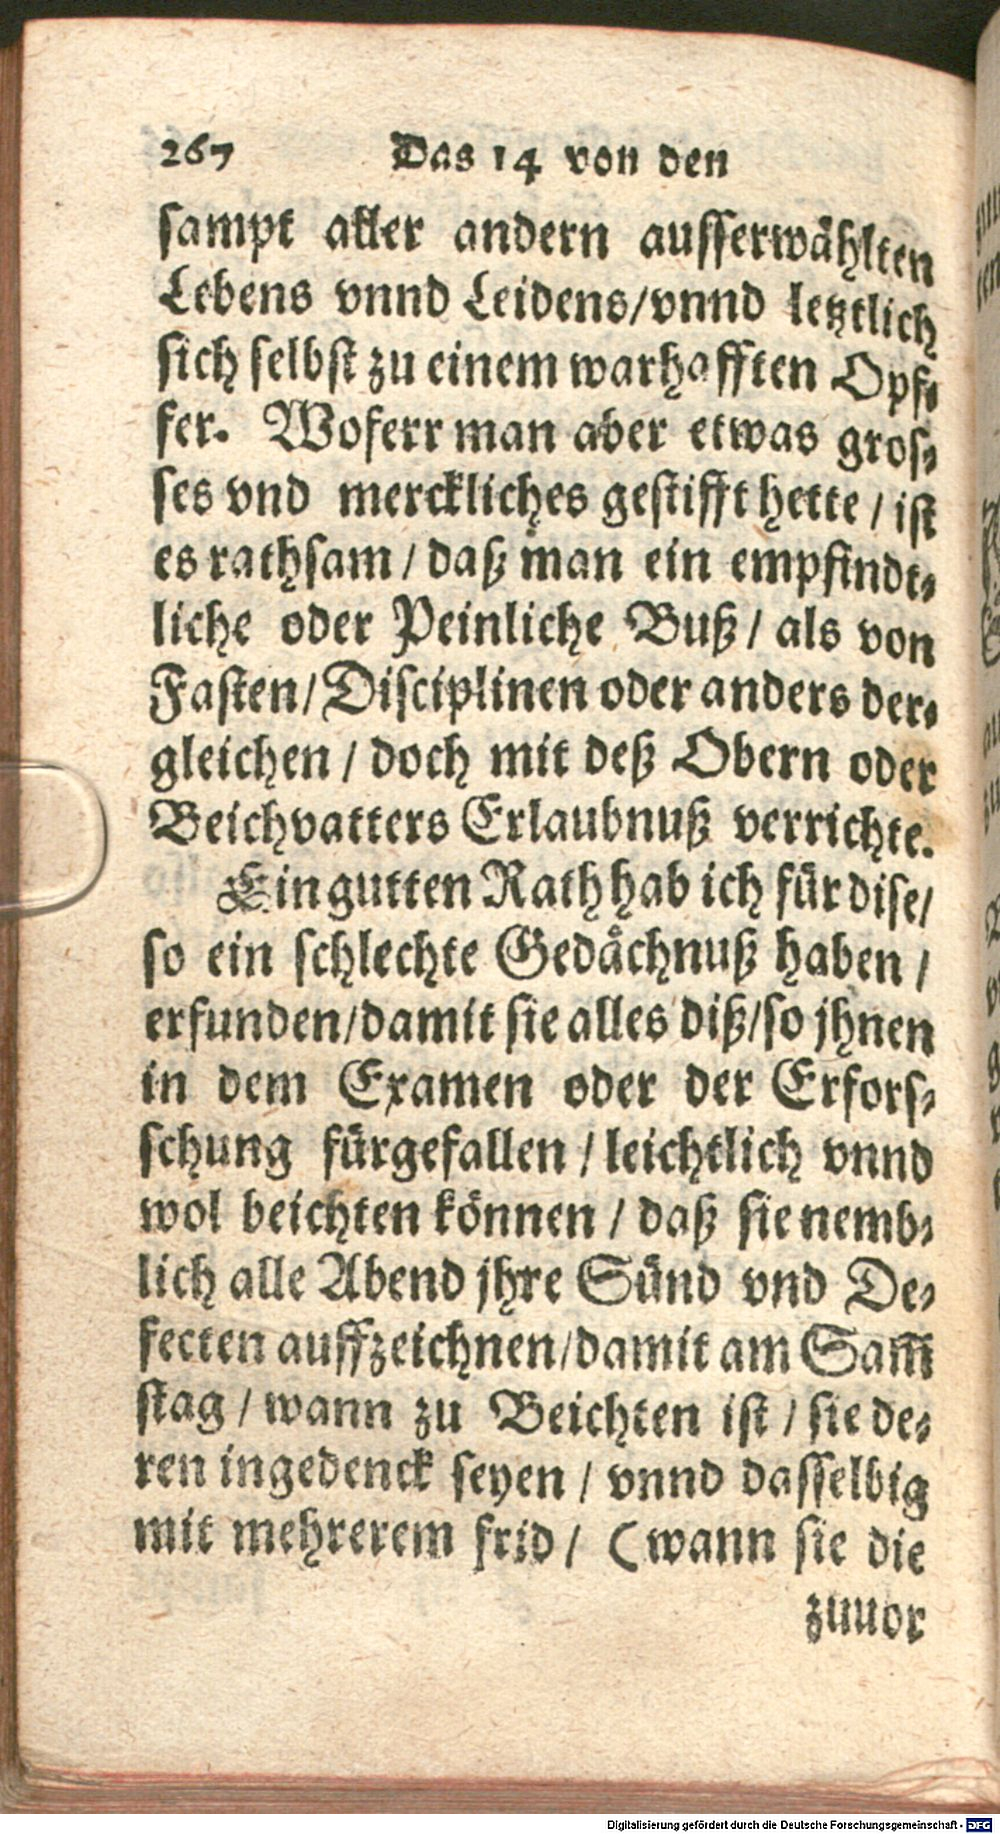 267 Das 14 von den
sampt aller andern ausserwählten
Lebens vnnd Leidens/vnnd letztlich
sich selbst zu einem warhafften Opf⸗
fer. Woferr man aber etwas gros⸗
ses vnd merckliches gestifft hette / ist
es rathsam / daß man ein empfindt⸗
liche oder Peinliche Buß / als von
Fasten/Disciplinen oder anders der⸗
gleichen / doch mit deß Obern oder
Beichvatters Erlaubnuß verrichte.
Ein gutten Rath hab ich für dise/
so ein schlechte Gedåchnuß haben /
erfunden/damit sie alles diß/so jhnen
in dem Examen oder der Erfors⸗
schung fürgefallen / leichtlich vnnd
wol beichten können / daß sie nemb⸗
lich alle Abend jhre Sünd vnd De⸗
fecten auffzeichnen/damit am Sam̅
stag / wann zu Beichten ist / sie de⸗
ren ingedenck seyen / vnnd dasselbig
mit mehrerem frid / (wann sie die
zuuor
Digitalisierung gefördert durch die Deutsche Forschungsgemeinschaft - DFG